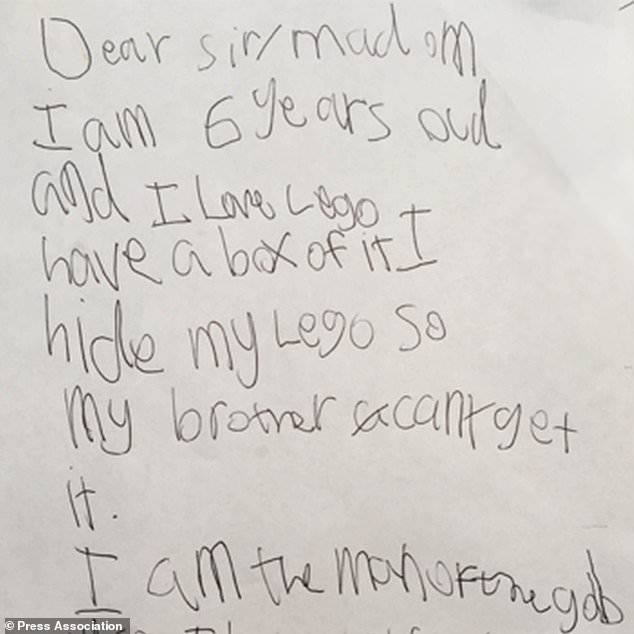 Dear sir/madom
I am 6 years oud
and I Love Lego I
have a box of it I
hide my Lego so
my brother cant get
it.
I am the man of the gob
© Press Association